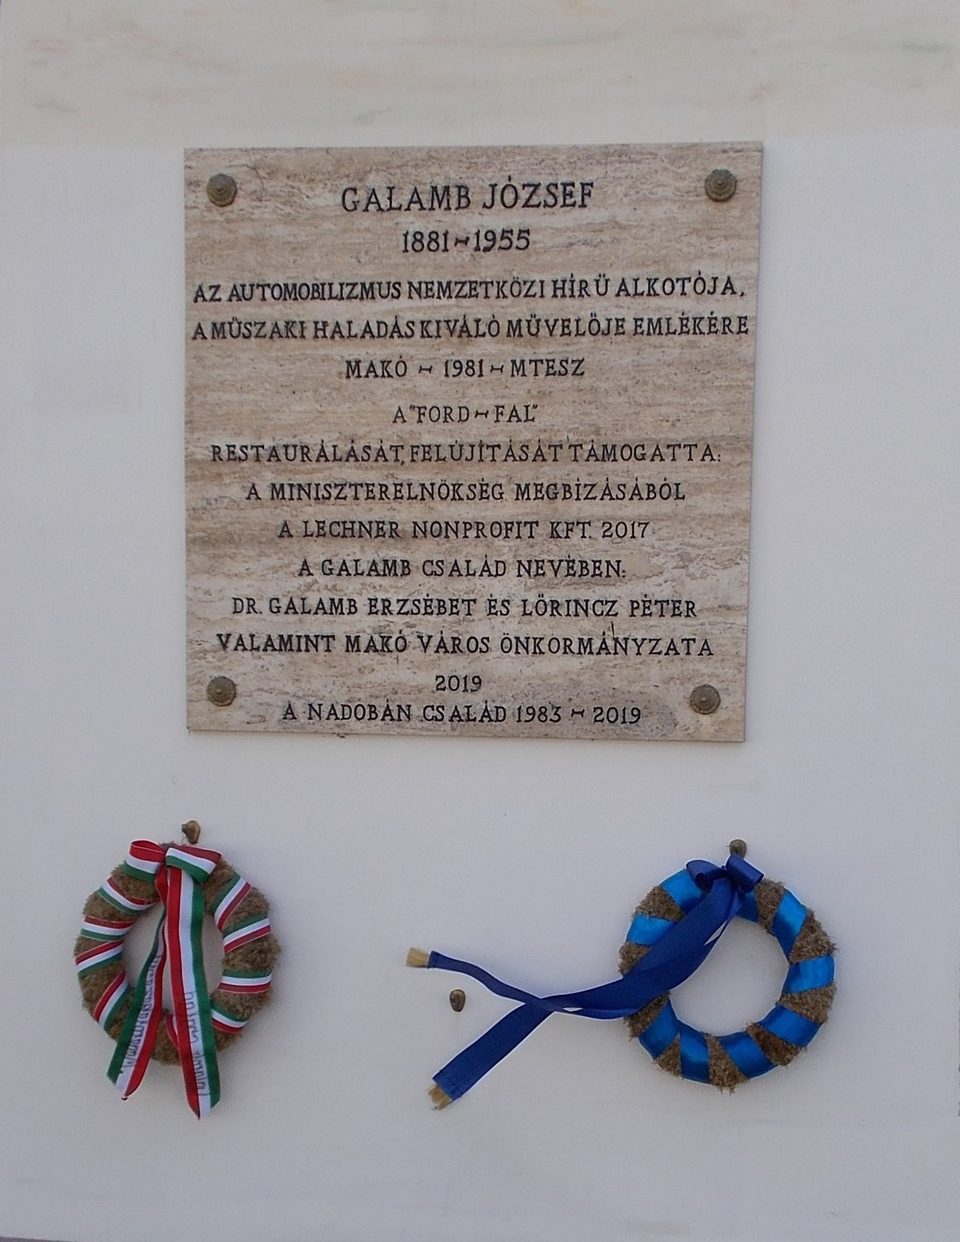 GALAMB JÓZSEF
1881-1955
AZ AUTOMOBILIZMUS NEMZETKÖZI HÍRÜ ALKOTÓJA,
A MÜSZAKI HALADÁS KIVÁLÓ MÜVELÖJE EMLÉKÉRE
MAKÓ - 1981 - MTESZ
A "FORD-FAL"
RESTAURÁLÁSÁT, FELÚJÍTÁSÁT TÁMOGATTA:
A MINISZTERELNÖKSÉG MEGBÍZÁSÁBÓL
A LECHNER NONPROFIT KFT. 2017
A GALAMB CSALÁD NEVÉBEN:
DR. GALAMB ERZSÉBET ÉS LÖRINCZ PÉTER
VALAMINT MAKÓ VÁROS ÖNKORMÁNYZATA
2019
A NADOBÁN CSALÁD 1983 - 2019